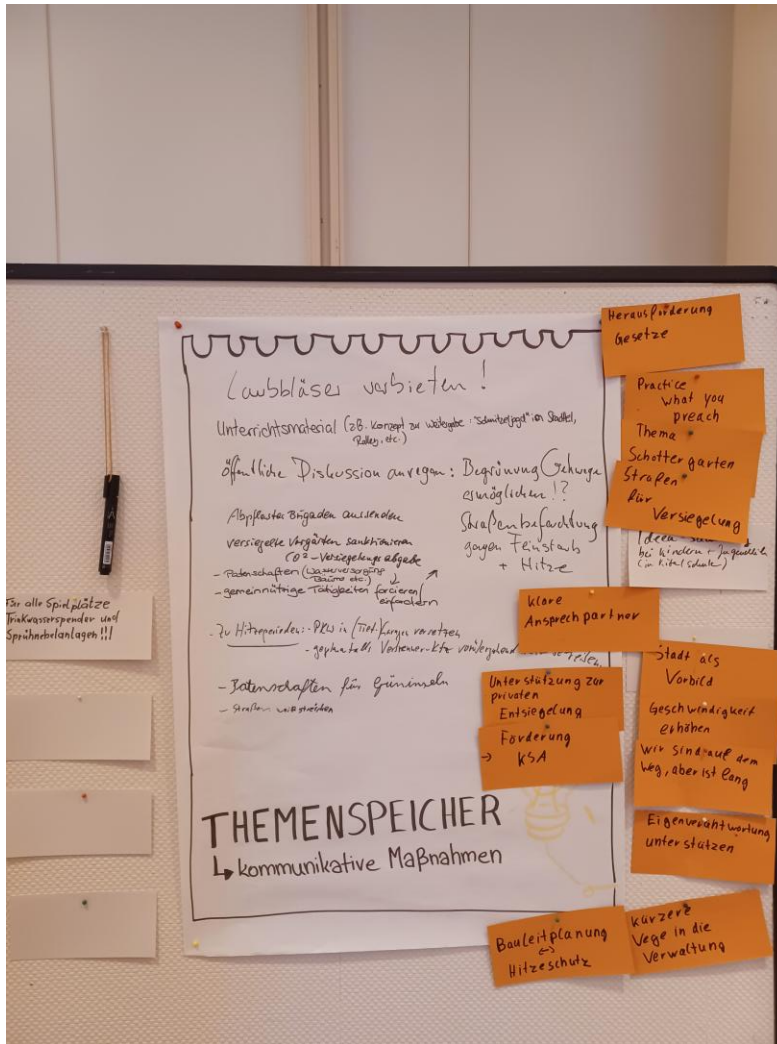 Laubbläser verbieten!
Unterrichtsmaterial (z.B. Konzept zur Weitergabe: "Schnitzeljagd" im Stadtteil,
Rallye, etc.)
öffentliche Diskussion anregen: Begrünung Gehwege
ermöglichen!?
Abpflaster Brigaden aussenden
versiegelte Vorgärten sanktionieren
CO² - Versiegelungsabgabe
- Patenschaften (Wasserversorgung
Bäume etc.)
- gemeinnützige Tätigkeiten forcieren/
einfordern
Straßenbefeuchtung
gegen Feinstaub
+ Hitze
- Zu Hitzeperioden: - PKW in (Tief-)garagen versetzen
- Patenschaften für Grüninseln
- Straßen weiß streichen
THEMENSPEICHER
↳ kommunikative Maßnahmen
Für alle Spielplätze
Trinkwasserspender und
Sprühnebelanlagen!!!
Herausforderung
Gesetze
Practice
what you
preach
Thema
Schottergarten
Strafen
für
Versiegelung
Ideen
bei Kindern + Jugendlichen
(in Kita/Schule)
klare
Ansprechpartner
Stadt als
Vorbild
Unterstützung zur
privaten
Entsiegelung
Förderung
→ KSA
Geschwindigkeit
erhöhen
wir sind auf dem
Weg, aber ist lang
Eigenverantwortung
unterstützen
Bauleitplanung
↔
Hitzeschutz
kürzere
Wege in die
Verwaltung